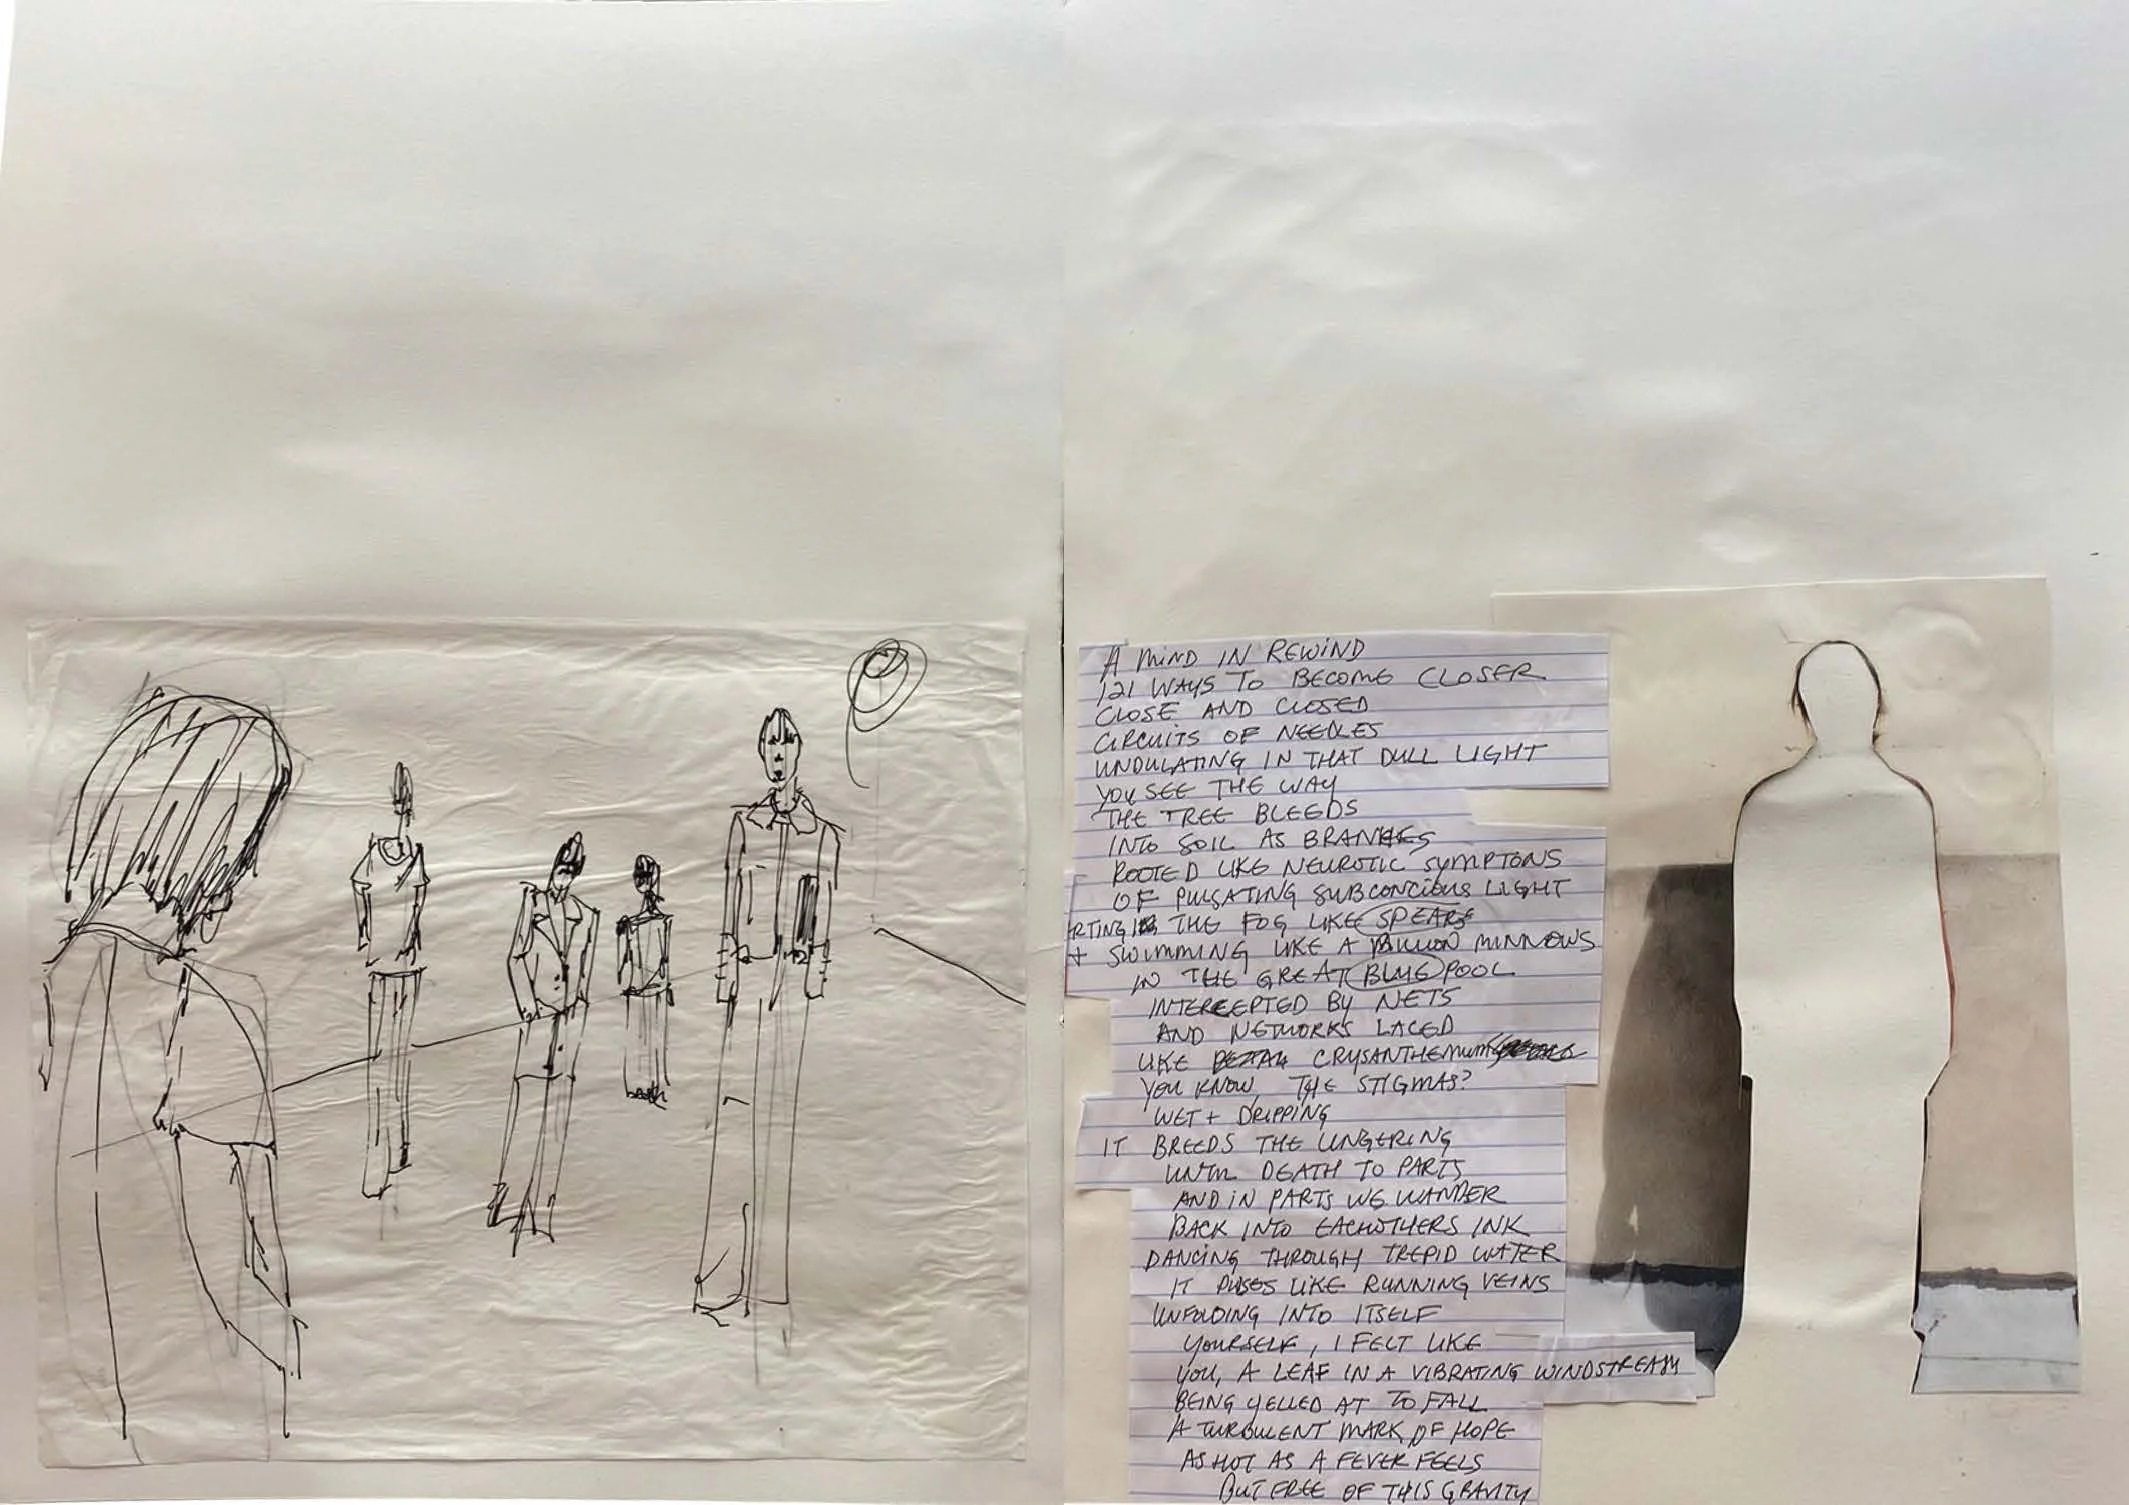 A MIND IN REWIND
121 WAYS TO BECOME CLOSER
CLOSE AND CLOSED
CIRCUITS OF NEEDLES
UNDULATING IN THAT DULL LIGHT
YOU SEE THE WAY
THE TREE BLEEDS
INTO SOIL AS BRANHES
ROOTED LIKE NEUROTIC SYMPTOMS
OF PULSATING SUBCONCIOUS LIGHT
RTING THE FOG LIKE SPEARS
+ SWIMMING LIKE A BILLION MINNOWS
IN THE GREAT BLUE POOL
INTERCEPTED BY NETS
AND NETWORKS LACED
LIKE CRYSANTHEMUM
YOU KNOW, THE STIGMAS?
WET + DRIPPING
IT BREEDS THE LINGERING
UNTIL DEATH TO PARTS
AND IN PARTS WE WANDER
BACK INTO EACHOTHERS INK
DANCING THROUGH TREPID WATER
IT PULSES LIKE RUNNING VEINS
UNFOLDING INTO ITSELF
YOURSELF, I FELT LIKE
YOU, A LEAF IN A VIBRATING WINDSTREAM
BEING YELLED AT TO FALL
A TURBULENT MARK OF HOPE
AS HOT AS A FEVER FEELS
BUT FREE OF THIS GRAVITY